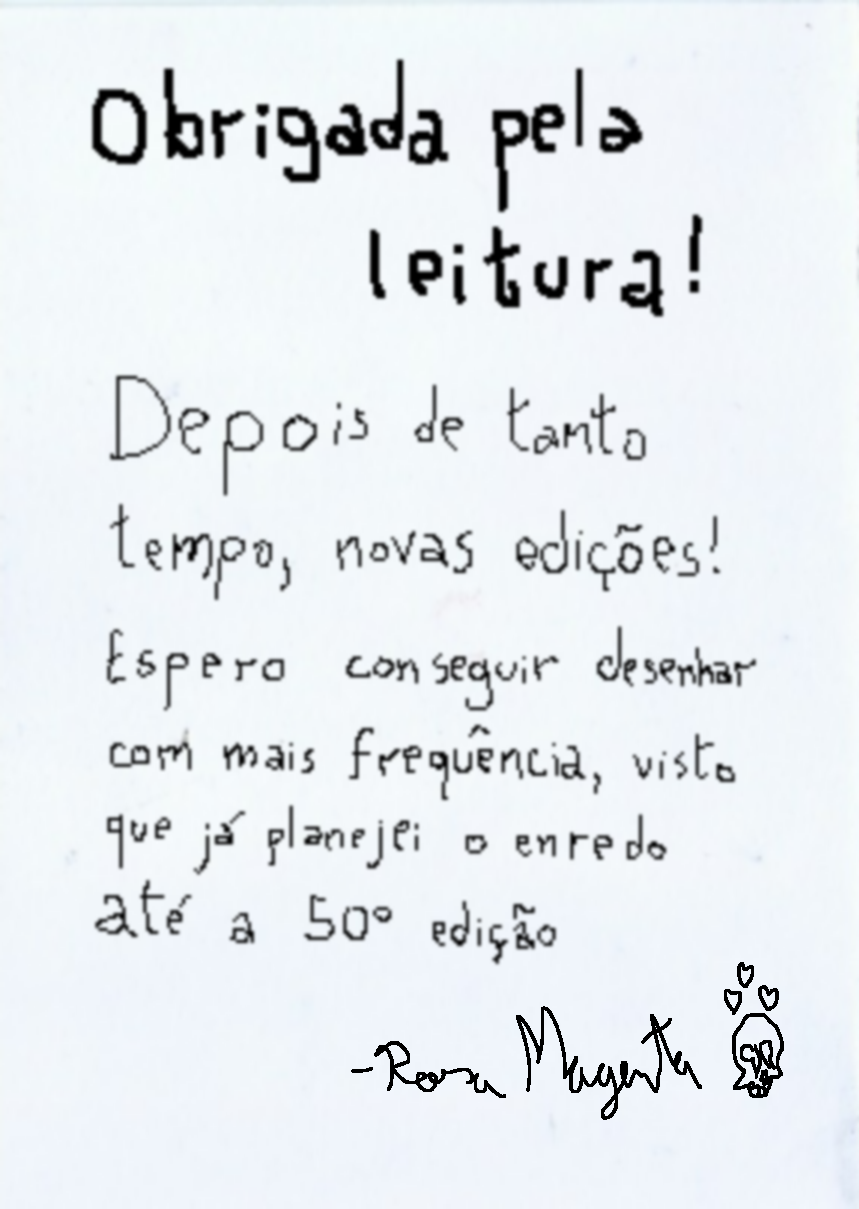 Obrigada pela
leitura!
Depois de tanto
tempo, novas edições!
Espero conseguir desenhar
com mais frequência, visto
que já planejei o enredo
até a 50º edição
-Rosa Magenta